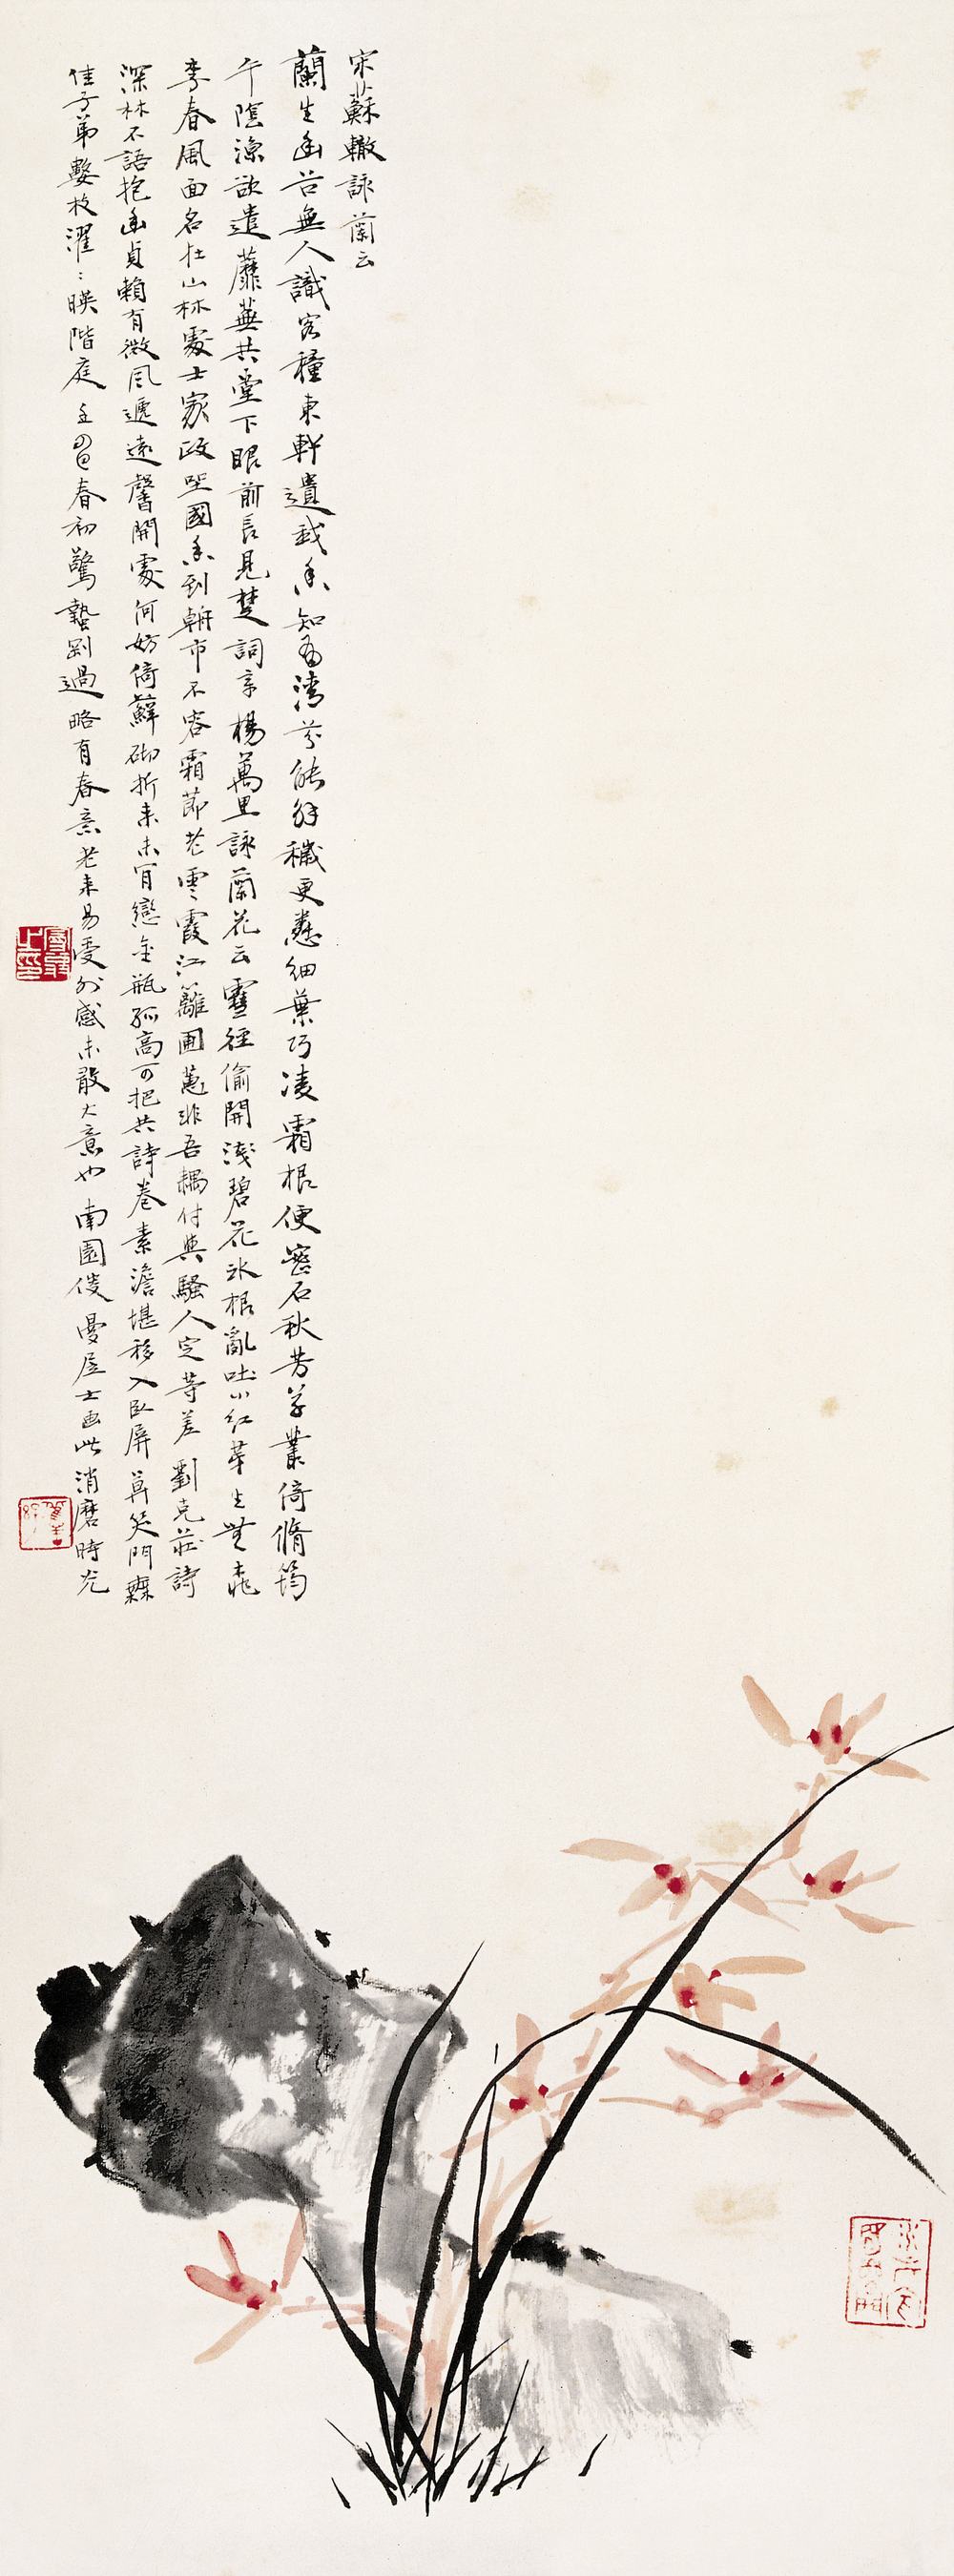 宋蘇轍詠蘭云
蘭生幽谷無人識客種東軒遺我香知為清芬能解穢更憐細葉巧凌霜根便密石秋芳早叢倚脩筠
午陰涼欲遣蘼蕪共堂下眼前長見楚詞章楊萬里詠蘭花云雪徑偷開淺碧花冰根亂吐小紅芽生無桃
李春風面名在山林處士家政坐國香到朝市不容霜節老雲霞江蘺圃蕙非吾耦付與騷人定等差劉克莊詩
深林不語抱幽貞賴有微風遞遠馨開處何妨倚蘚砌折來未肯戀金瓶孤高可把共詩卷素澹堪移入臥屏莫笑門無
佳子弟數枝濯〻暎階庭春初驚蟄剛過略有春意老來易受外感未敢大意也南園居士画此消磨時光